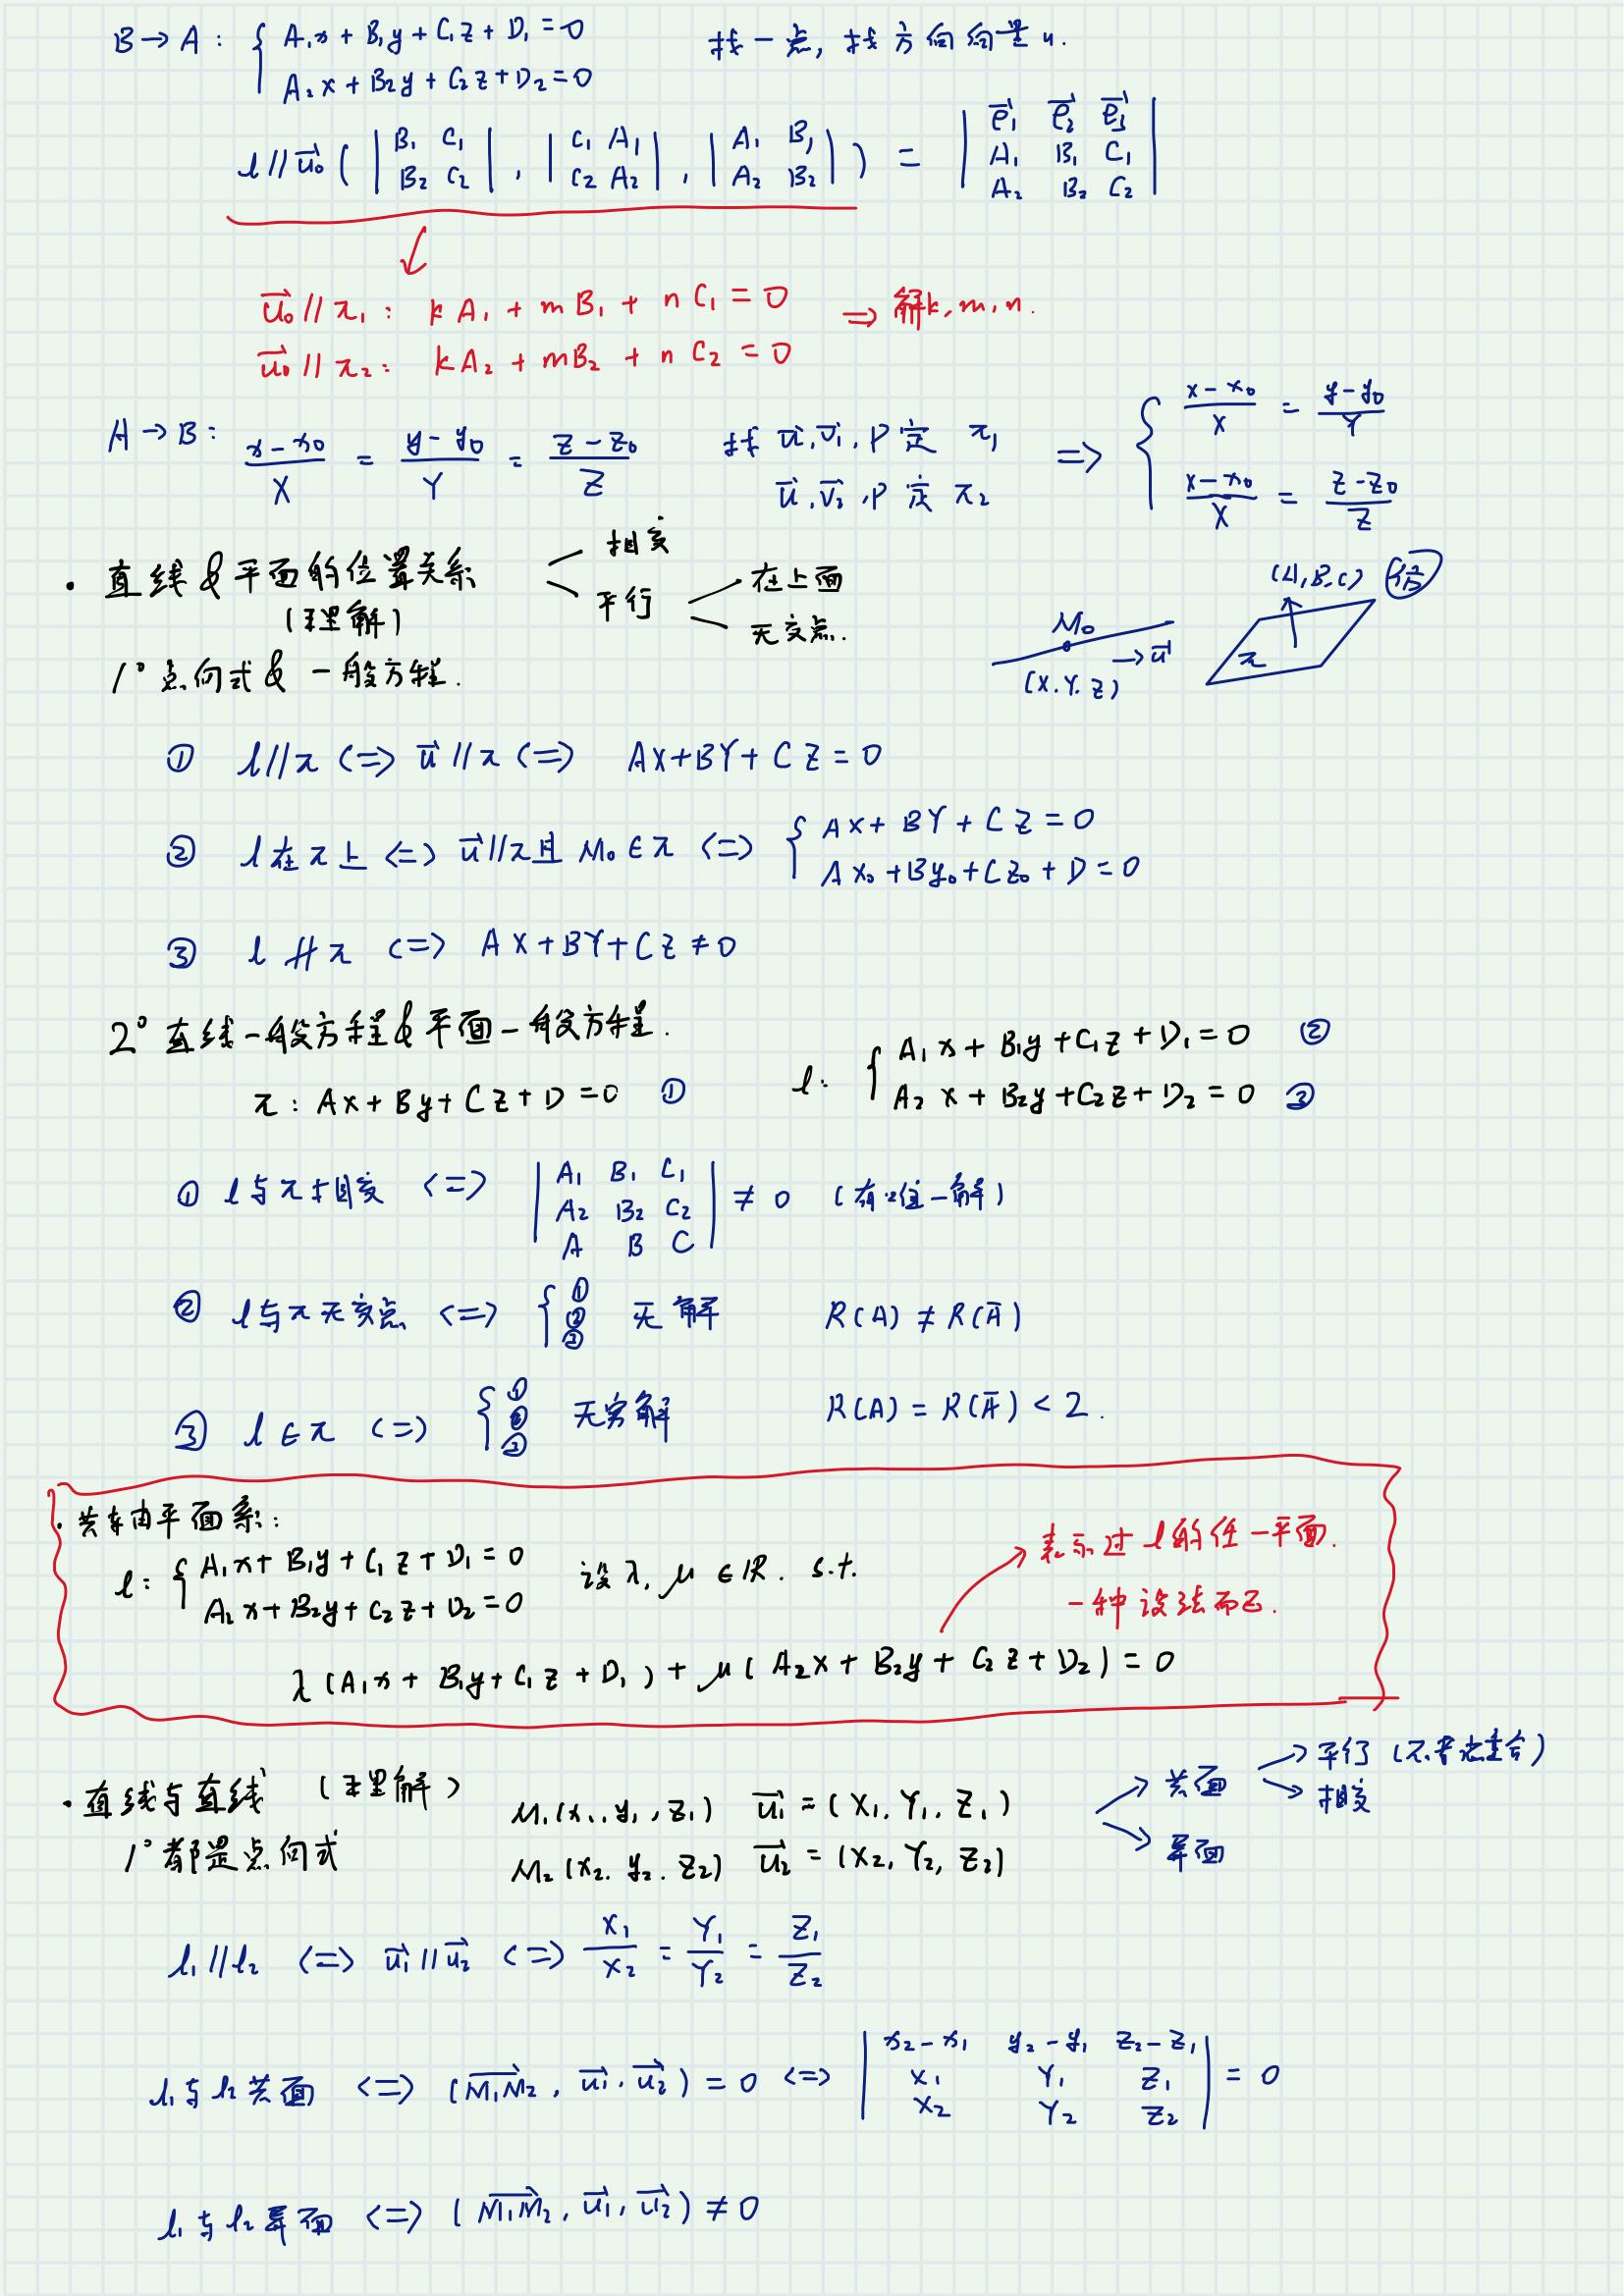 B→A: { A₁x + B₁y + C₁z + D₁ = 0 找一点, 找方向向量 u.
A₂x + B₂y + C₂z + D₂ = 0
l // u⃗₀ ( | B₁ C₁ ; B₂ C₂ | , | C₁ A₁ ; C₂ A₂ | , | A₁ B₁ ; A₂ B₂ | ) = | e⃗₁ e⃗₂ e⃗₃ ; A₁ B₁ C₁ ; A₂ B₂ C₂ |
u⃗₀ // π₁: kA₁ + mB₁ + nC₁ = 0 ⇒ 解k,m,n.
u⃗₀ // π₂: kA₂ + mB₂ + nC₂ = 0
A→B: (x-x₀)/X = (y-y₀)/Y = (z-z₀)/Z 找 u⃗,v⃗₁,P 定 π₁ ⇒ { (x-x₀)/X = (y-y₀)/Y
u⃗,v⃗₂,P 定 π₂ (x-x₀)/X = (z-z₀)/Z
· 直线&平面的位置关系 相交
(理解) 平行 在上面
无交点.
(A,B,C)
M₀ → u⃗ π
(X.Y.Z)
1° 点向式 & 一般方程.
① l//π <=> u⃗//π <=> AX+BY+CZ=0
② l在π上 <=> u⃗//π且 M₀∈π <=> { AX+BY+CZ=0
Ax₀+By₀+Cz₀+D=0
③ l ∦ π <=> AX+BY+CZ≠0
2° 直线一般方程&平面一般方程.
π: Ax+By+Cz+D=0 ① l: { A₁x+B₁y+C₁z+D₁=0 ②
A₂x+B₂y+C₂z+D₂=0 ③
① l与π相交 <=> | A₁ B₁ C₁ ; A₂ B₂ C₂ ; A B C | ≠ 0 (有唯一解)
② l与π无交点 <=> { ① ② ③ 无解 R(A) ≠ R(Ā)
③ l∈π <=> { ① ② ③ 无穷解 R(A) = R(Ā) < 2.
· 共轴平面系:
l: { A₁x+B₁y+C₁z+D₁=0 设λ,μ∈R. s.t. 表示过l的任一平面.
A₂x+B₂y+C₂z+D₂=0 一种设法而已.
λ(A₁x+B₁y+C₁z+D₁)+μ(A₂x+B₂y+C₂z+D₂)=0
· 直线与直线 (理解) M₁(x₁,y₁,z₁) u⃗₁=(X₁,Y₁,Z₁) 共面 平行(不考虑重合)
相交
1° 都是点向式 M₂(x₂.y₂.z₂) u⃗₂=(X₂,Y₂,Z₂) 异面
l₁//l₂ <=> u⃗₁//u⃗₂ <=> X₁/X₂ = Y₁/Y₂ = Z₁/Z₂
l₁与l₂共面 <=> (M₁M₂, u⃗₁, u⃗₂)=0 <=> | x₂-x₁ y₂-y₁ z₂-z₁ ; X₁ Y₁ Z₁ ; X₂ Y₂ Z₂ | = 0
l₁与l₂异面 <=> (M₁M₂, u⃗₁, u⃗₂)≠0